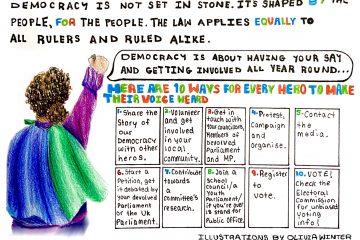 DEMOCRACY IS NOT SET IN STONE. IT'S SHAPED BY THE
PEOPLE, FOR THE PEOPLE. THE LAW APPLIES EQUALLY TO
ALL RULERS AND RULED ALIKE.
DEMOCRACY IS ABOUT HAVING YOUR SAY
AND GETTING INVOLVED ALL YEAR ROUND...
HERE ARE 10 WAYS FOR EVERY HERO TO MAKE
THEIR VOICE HEARD
1. Share the
Story of
our
Democracy
with other
heros.
2. Volunteer
and get
involved in
your local
community.
3. Get in
touch with
your councillors,
Members of
Devolved
Parliament
and MP.
4. Protest,
Campaign
and
organise.
5. Contact
the
media.
6. Start a
Petition, get
it debated by
your devolved
Parliament
or the UK
Parliament.
7. Contribute
towards
a
committee's
research.
8. Join a
School
council/a
Youth
Parliament/
if you're past
18 stand for
Public Office.
9. Register
to
vote.
10. VOTE!
Check the
Electoral
Commission
for unbiased
Voting info!
ILLUSTRATIONS BY OLIVIA WINTER